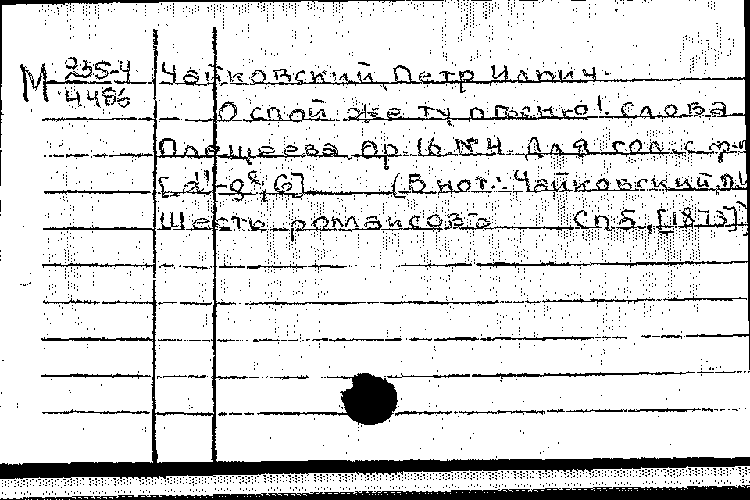 М 235-4 Чайковский, Петр Ильич.
4486 О спой же ту песню! Слова
Плещеева Ор. 16 № 4. Для сол. с ф-п
[d¹-g², G] (В нот.: Чайковский, П.И
Шесть романсовъ СПб, [1873])